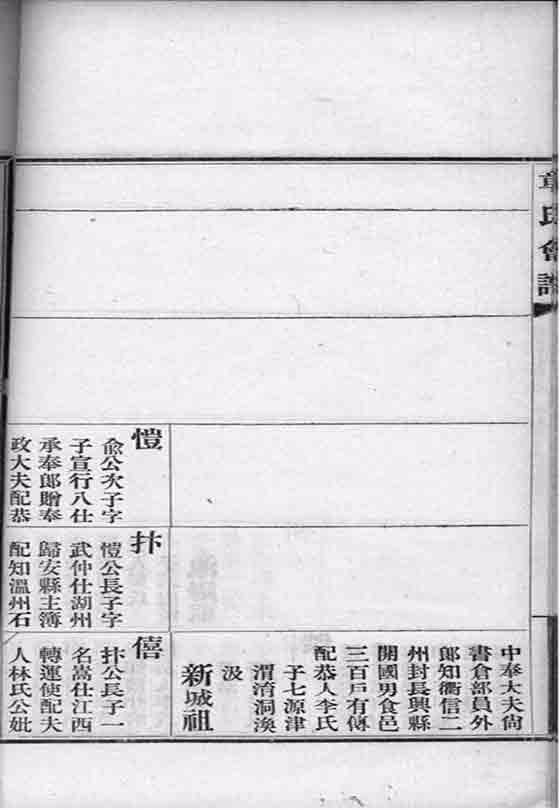 章氏會譜
中奉大夫尚
書倉部員外
郎知衢信二
州封長興縣
開國男食邑
三百戶有傳
配恭人李氏
子七源津
渭淯洞渙
汲
新城祖
愷
兪公次子字
子宣行八仕
承奉郎贈奉
政大夫配恭
抃
愷公長子字
武仲仕湖州
歸安縣主簿
配知溫州石
僖
抃公長子一
名嵩仕江西
轉運使配夫
人林氏公妣